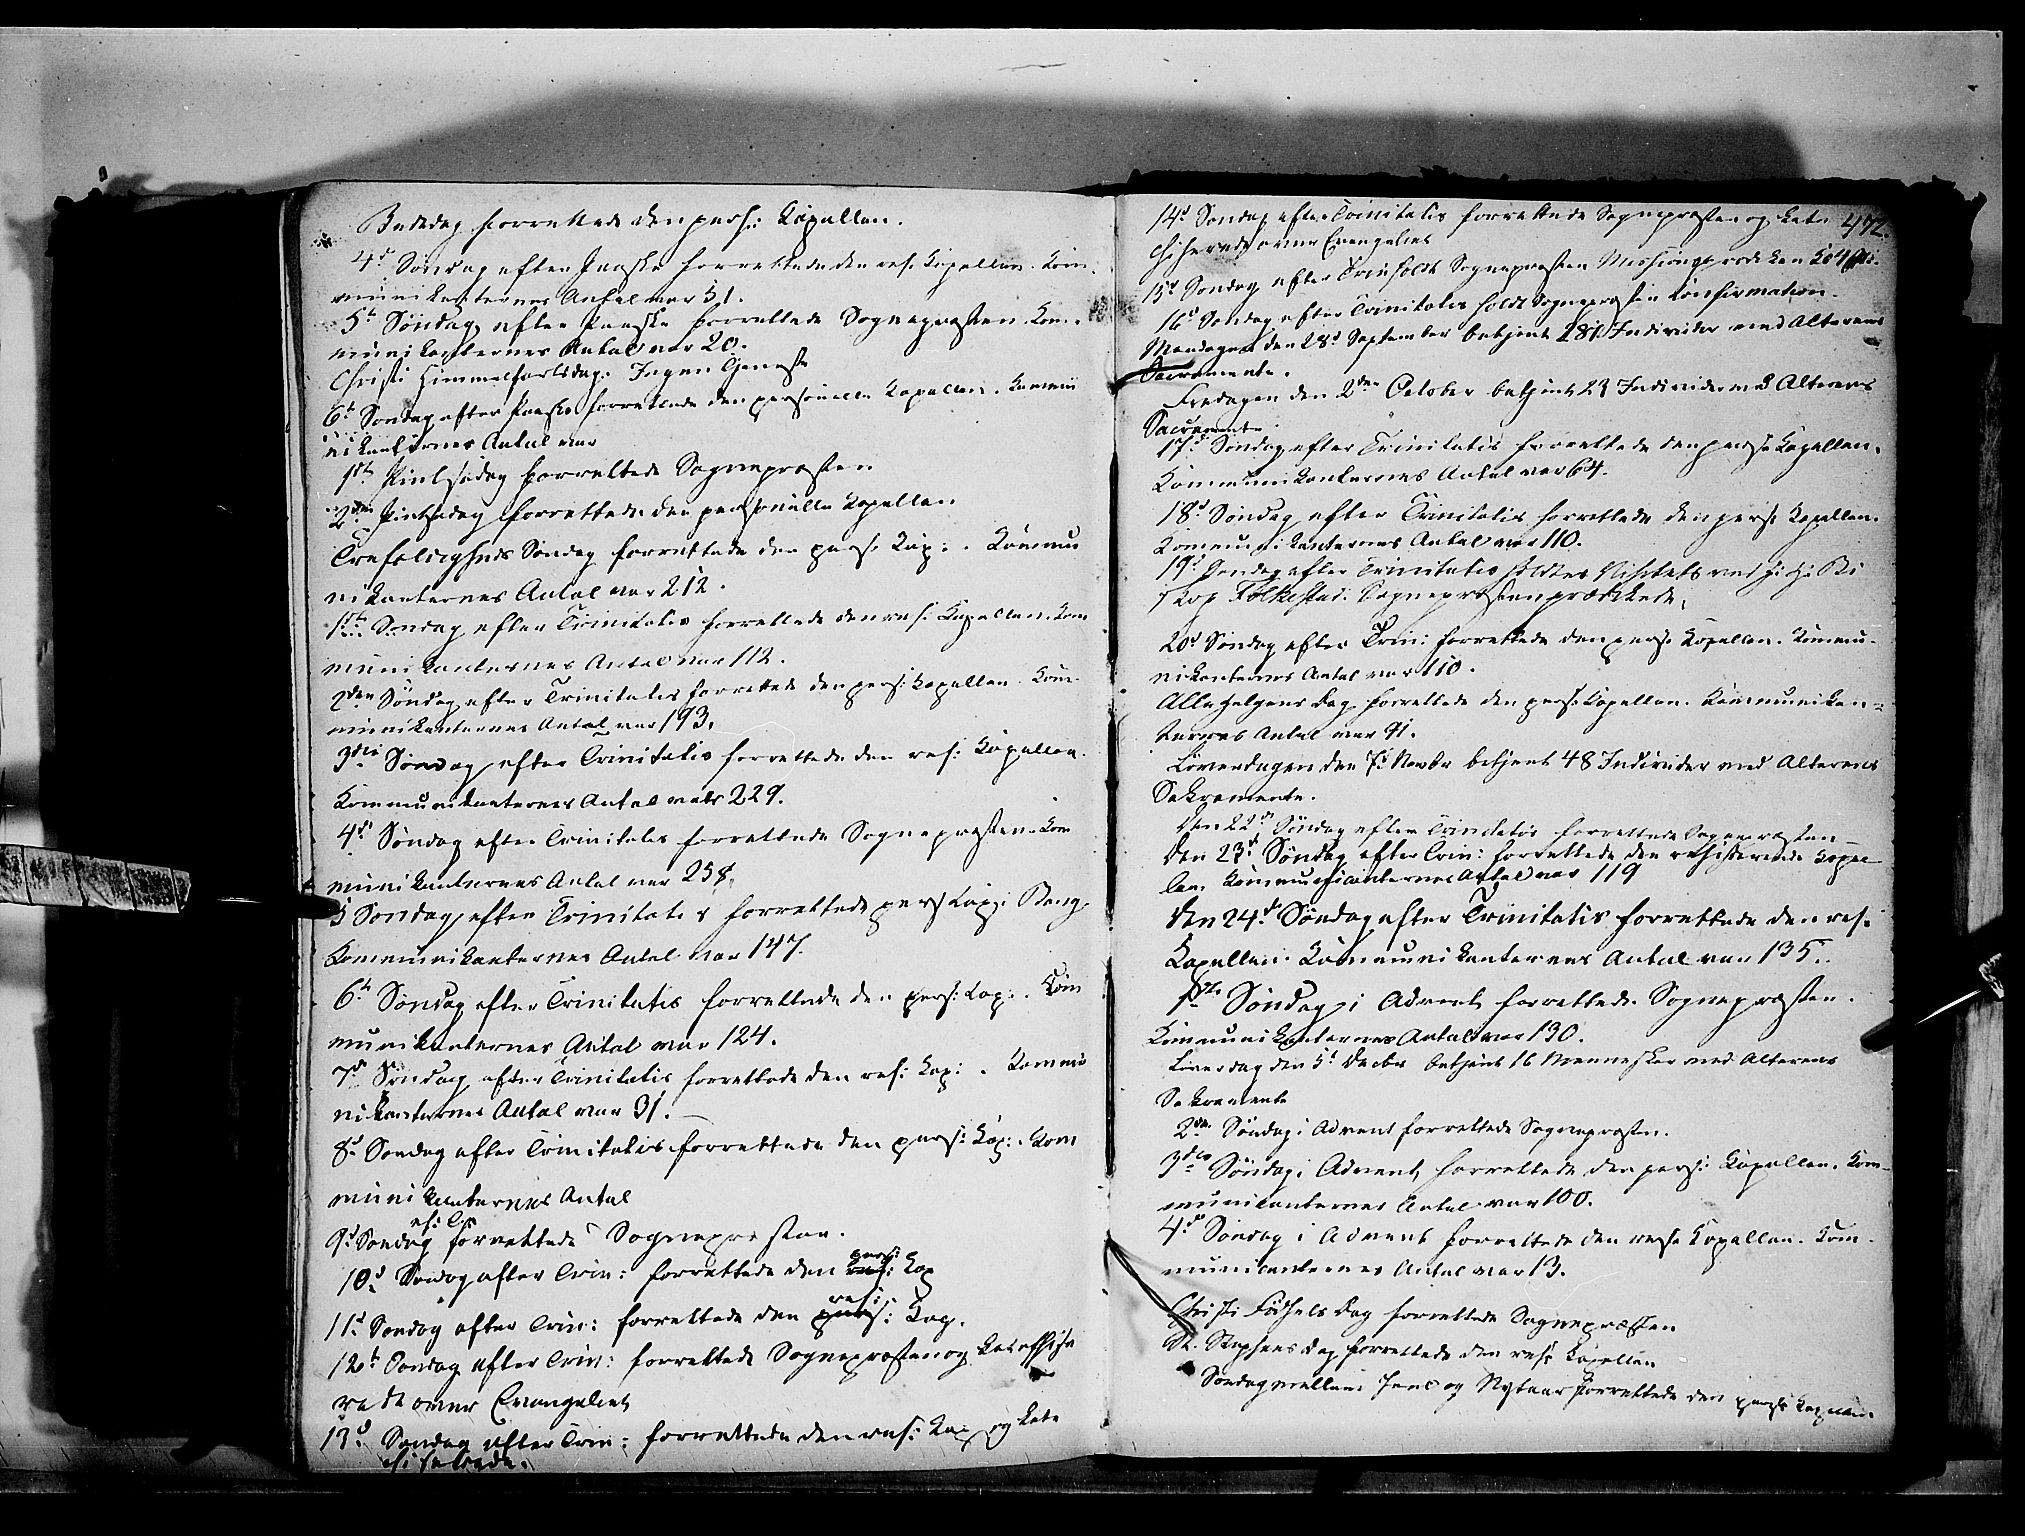 Bededag forrettede den pers: Kapellan.
4d Søndag efter Paaske forrettede den res: Kapellan. Kom-
munikanternes Antal var 51.
5te Søndag efter Paaske forrettede Sognepræsten. Kom-
munikanternes Antal var 20.
Christi Himmelfartsdag. Ingen Tjeneste
6te Søndag efter Paaske forrettede den personelle Kapellan. Kommu
nikanternes Antal var
1ste Pintsedag forrettede Sognepræsten
2den Pintsedag forrettede den personelle Kapellan
Trefoldigheds Søndag forrettede den pers: Kap: . Kommu
nikanternes Antal var 212.
1ste Søndag efter Trinitatis forrettede den res: Kapellan. Kom
munikanternes Antal var 112.
2den Søndag efter Trinitatis forrettede den pers: Kapellan. Kom-
munikanternes Antal var 193.
3die Søndag efter Trinitatis forrettede den res: Kapellan.
Kommunikanternes Antal var 229.
4de Søndag efter Trinitatis forrettede Sognepræsten. Kom
munikanternes Antal var 258.
5 Søndag efter Trinitatis forrettede pers Kap:
Kommunikanternes Antal var 147.
6te Søndag efter Trinitatis forrettede den pers: Kap: . Kom
munikanternes Antal var 124.
7de Søndag efter Trinitatis forrettede den res: Kap: . Kommu
nikanternes Antal var 31.
8d Søndag efter Trinitatis forrettede den pers: Kap: . Kom
munikanternes Antal
9d Søndag forrettede Sognepræsten.
10d Søndag efter Trin: forrettede den pers: Kap
11d Søndag efter Trin: forrettede den res: Kap.
12te Søndag efter Trin: forrettede Sognepræsten og Katechise
rede over Evangeliet
13d Søndag efter Trin: forrettede den res: Kap og Kate
chiserede.
472.
14d Søndag efter Trinitatis forrettede Sognepræsten og Kate
chiserede over Evangeliet
15d Søndag efter Trin holdt Sognepræsten Missionsprædiken
16d Søndag efter Trinitatis holdt Sognepræsten Confirmation.
Mandagen den 28d September betjent 281 Individer med Alterens
Sacramente.
Fredagen den 2den October betjent 23 Individer m. Alterens
Sacramente
17d Søndag efter Trinitatis forrettede den pers: Kapellan.
Kommunikanternes Antal var 64.
18d Søndag efter Trinitatis forrettede den pers: Kapellan.
Kommunikanternes Antal var 110.
19d Søndag efter Trinitatis holdtes Visitats ved Hr Bi
skop Folkestad. Sognepræsten prædikede.
20d Søndag efter Trin: forrettede den pers: Kapellan. Kommu-
nikanternes Antal var 110.
Alle Helgens Dag forrettede den pers: Kapellan. Kommunikan-
ternes Antal var 91.
Løverdagen den 7d Novbr betjent 48 Individer med Alterens
Sakramente.
Den 22de Søndag efter Trinitatis forrettede Sognepræsten
Den 23d Søndag efter Trin: forrettede den residerende Kapel-
lan. Kommunicanternes Antal var 119
Den 24d Søndag efter Trinitatis forrettede den res:
Kapellan. Kommunikanternes Antal var 135.
1ste Søndag i Advent forrettede Sognepræsten.
Kommunikanternes Antal var 130.
Løverdag den 5d Decbr betjent 16 Mennesker med Alterens
Sakramente
2den Søndag i Advent forrettede Sognepræsten.
3die Søndag i Advent forrettede den pers: Kapellan. Kom-
munikanternes Antal var 100.
4de Søndag i Advent forrettede den res: Kapellan. Kom-
municanternes Antal var 13.
Christi Fødsels Dag forrettede Sognepræsten
St. Stephens Dag forrettede den res: Kapellan
Søndag mellem Juul og Nytaar forrettede den pers: Kapellan.